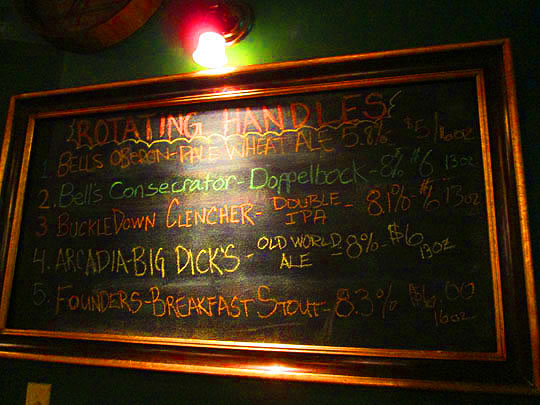 ROTATING HANDLES
1. BELLS OBERON-PALE WHEAT ALE 5.8% $5/16oz
2. Bells Consecrator-Doppelbock-8% $6 13oz
3. BUCKLEDOWN CLENCHER-DOUBLE IPA-8.1%-$6 13oz
4. ARCADIA-BIG DICK'S-OLD WORLD ALE-8%-$6 13oz
5. FOUNDERS-BREAKFAST STOUT-8.3% $6.00 16oz